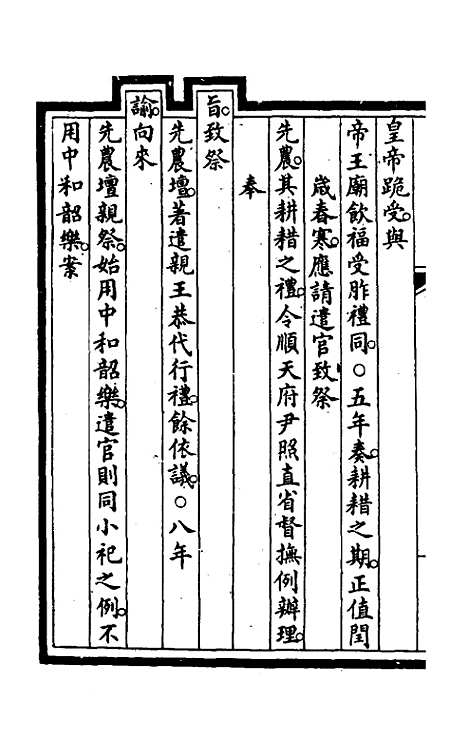 皇帝跪受。與
帝王廟飲福受胙禮同。○五年奏耕耤之期。正值閏
歲春寒。應請遣官致祭
先農。其耕耤之禮。令順天府尹照直省督撫例辦理。
奉
旨。致祭
先農壇。著遣親王恭代行禮。餘依議。○八年
諭。向來
先農壇親祭。始用中和韶樂。遣官則同小祀之例。不
用中和韶樂。案